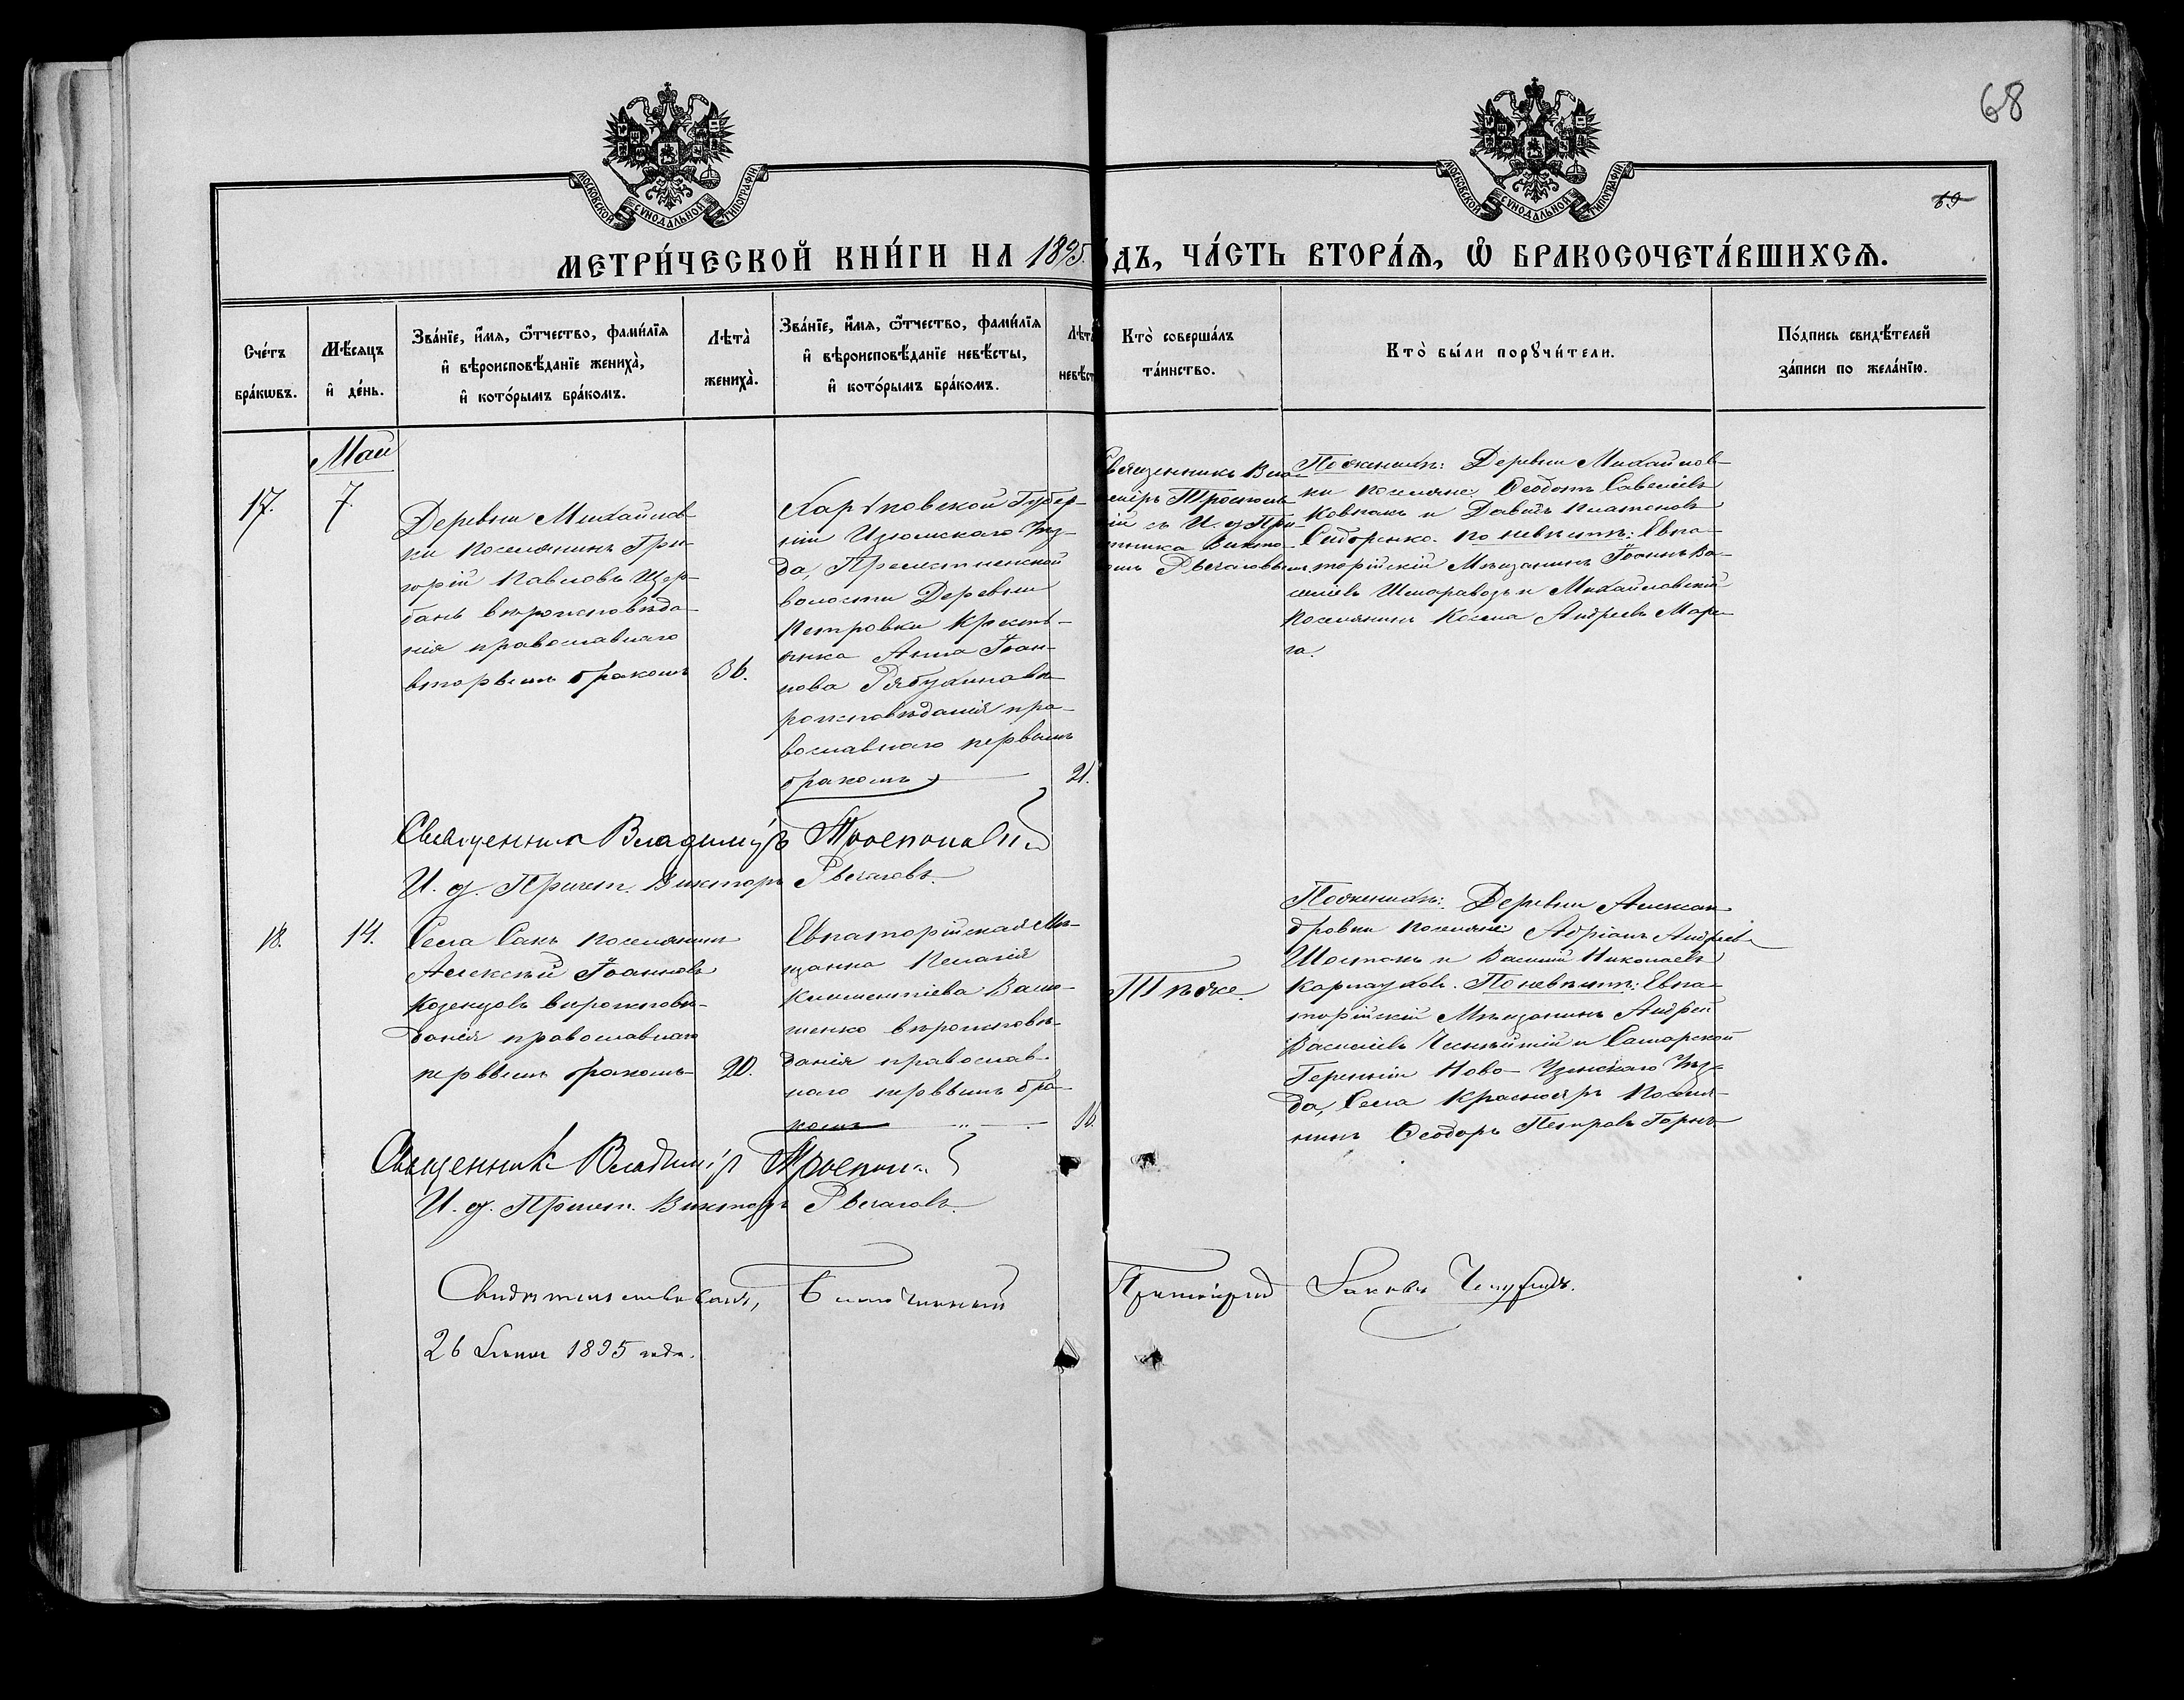 68
69
МОСКОВСКОЙ СУНОДАЛЬНОЙ ТИПОГРАФІИ
МОСКОВСКОЙ СУНОДАЛЬНОЙ ТИПОГРАФІИ
МЕТРИ́ЧЕСКОЙ КНИ́ГИ НА 1895
ДЪ, ЧА́СТЬ ВТОРА́Ѧ, Ѽ БРАКОСОЧЕТА́ВШИХСѦ.
Сче́тъ бра́кωвъ.
Мѣ́сяцъ и҆ де́нь.
Зва́нїе, и҆́мѧ, ѻ҆́тчество, фами́лїѧ
и҆ вѣроисповѣ́данїе жениха̀,
и҆ кото́рымъ бра́комъ.
Лѣта̀
жениха̀.
Зва́нїе, и҆́мѧ, ѻ҆́тчество, фами́лїѧ
и҆ вѣроисповѣ́данїе невѣ́сты,
и҆ кото́рымъ бра́комъ.
Лѣта
невѣст
Кто̀ соверша́лъ
та́инство.
Кто̀ бы́ли порꙋчи́тели.
По́дпись свидѣ́телей
за́писи по жела́нїю.
Май
17.
7.
Деревни Михайлов-
ки поселянинъ Гри-
горій Павловъ Щер-
бань вѣроисповѣда-
нія православнаго
вторымъ бракомъ
36.
Харьковской Губер-
ніи Изюмскаго Уѣз-
да,
волости Деревни
Петровки крестъ-
янка Анна Іоан-
нова Рябухина вѣ-
роисповѣданія пра-
вославнаго первымъ
бракомъ
21.
Священникъ Вла-
диміръ
ій съ И. д. Пса-
Викто-
Рычаговымъ.
По женихѣ: Деревни Михайлов-
ки поселяне: Ѳеодотъ Савельевъ
Ковпакъ и Давидъ Платоновъ
Сидоренко. По невѣстѣ: Евпа-
торійскій Мѣщанинъ Іоаннъ Ва-
сильевъ и Михайловскій
поселянинъ Косма Андреевъ Мар-
Священникъ Владиміръ
И. д. Причет. Викторъ Рычаговъ.
18.
14.
Села Сакъ поселянинъ
Алексѣй Іоанновъ
вѣроисповѣ-
данія православнаго
первымъ бракомъ
20.
Евпаторійская Мѣ-
щанка Пелагія
Климентіева
вѣроисповѣ-
данія православ-
наго первымъ бра-
комъ
16.
Тѣ же.
По женихѣ: Деревни Алексан-
дровки поселяне: Адріанъ Андреевъ
Шостакъ и Василій Николаевъ
По невѣстѣ: Евпа-
торійскій Мѣщанинъ Андрей
Васильевъ и Самарской
Губерніи Ново-Узенскаго Уѣз-
да, Села Краснояръ поселя-
нинъ Ѳеодоръ Петровъ
Священникъ Владиміръ
И. д. Причет. Викторъ Рычаговъ.
Свидѣтельствовалъ, Благочинный Протоіерей Іаковъ
26 1895 года.